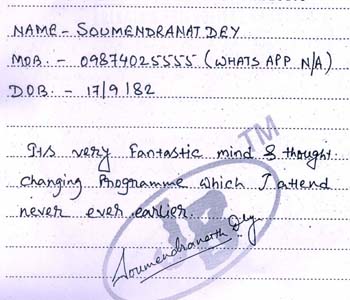 NAME - SOUMENDRANAT DEY
MOB. - 09874025555 (WHATS APP N/A)
D.O.B. - 17/9/82
TM
Its very Fantastic mind & thought
changing Programme which I attend
never ever earlier.
JB
Soumendranath Dey